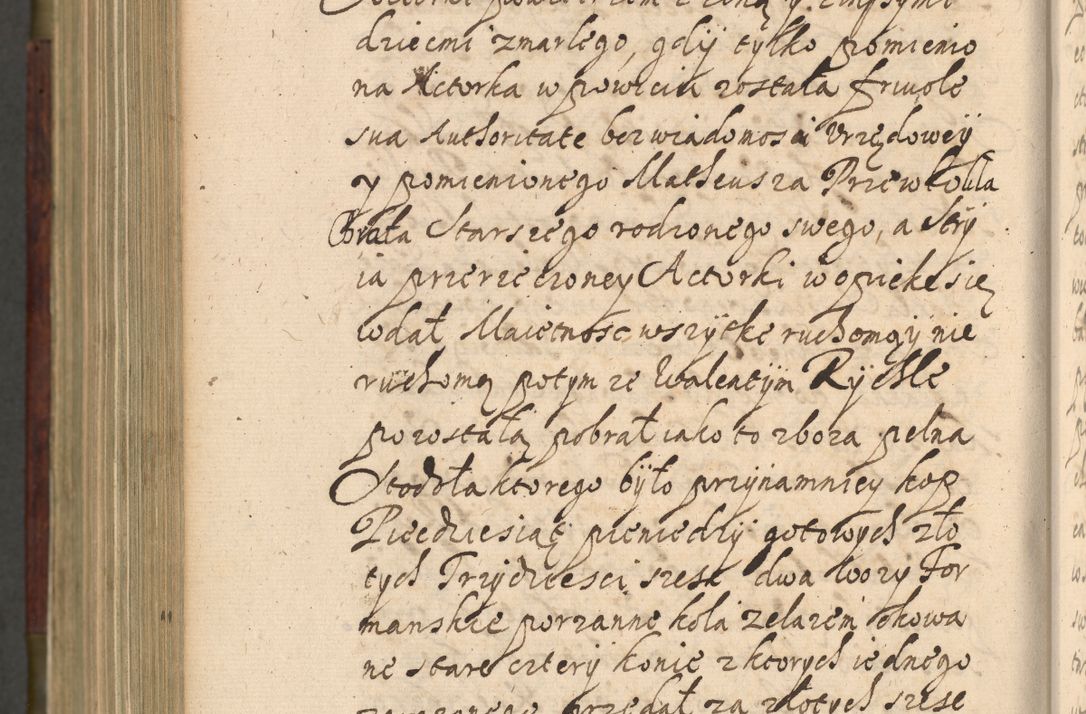 powietrzem z żoną y innÿmi
dziecmi zmarłego, gdÿ tÿlko pomienio
na Actorka w powiciu została frivole
sua Authoritate bez wiadomosci Vrzędoweÿ
y pomienionego Matheusza Przewłoka
Brata Starszego rodzonego swego, a Strÿ
ia przerzeczoney Actorki w opiekę się
wdał, Maiętnosc wszÿtkę ruchomą ÿ nie
ruchomą potym ze Walentÿm Rÿchle
pozostałą pobrał iako to zboza pełna
Stodoła ktorego bÿło przÿnamniey kop
Pięcdziesiąt pieniedzÿ gotowych zło
tych Trzÿdziesci szesc dwa wozy For
manskie porzanne koła zelazem okowa
ne stare czterÿ konie z ktorych iednego
przedał za złotych szesc